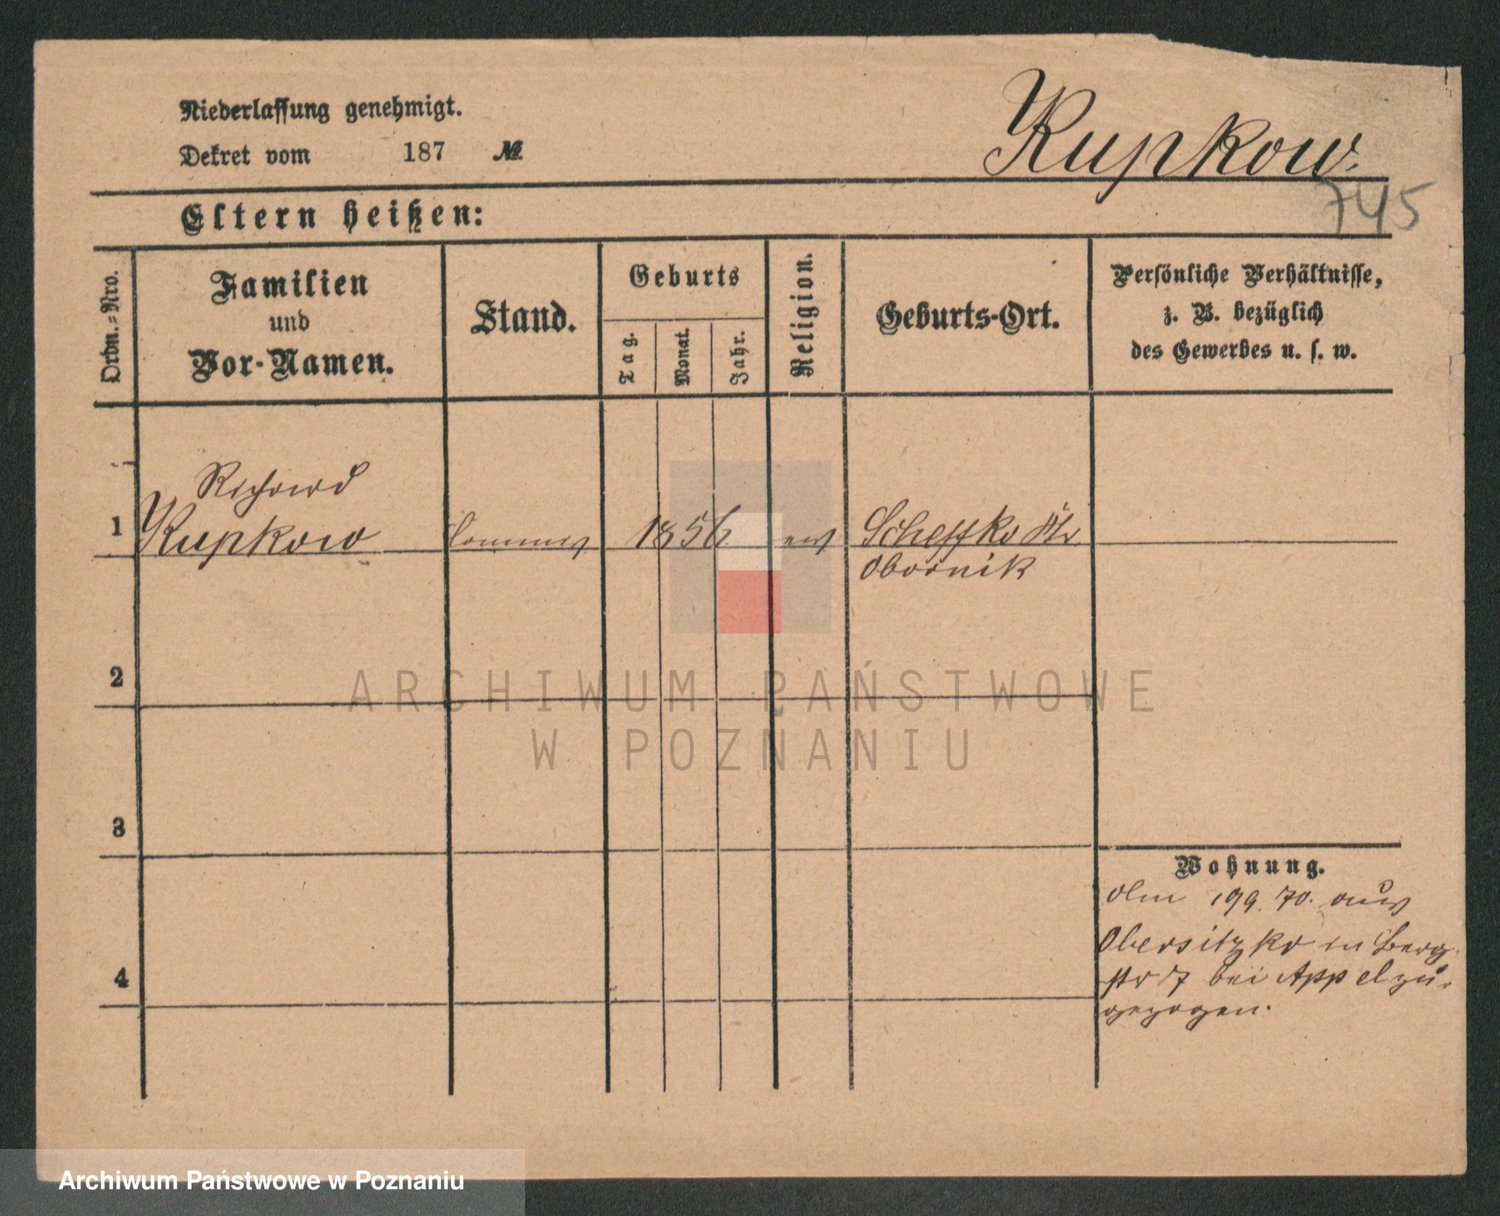 Niederlassung genehmigt.
Dekret vom 187 №
Kupkow.
745
Eltern heißen:
Ordn.-Nro.
Familien
und
Vor-Namen.
Stand.
Geburts
Tag.
Monat.
Jahr.
Religion.
Geburts-Ort.
Persönliche Verhältnisse,
z. B. bezüglich
des Gewerbes u. s. w.
Richard
1 Kupkow 1856 ev
Obornik
2
3
4
Wohnung.
70. aus
Obersitzko in Berg
str 7 bei Appel zu-
gezogen.
ARCHIWUM PAŃSTWOWE
W POZNANIU
Archiwum Państwowe w Poznaniu